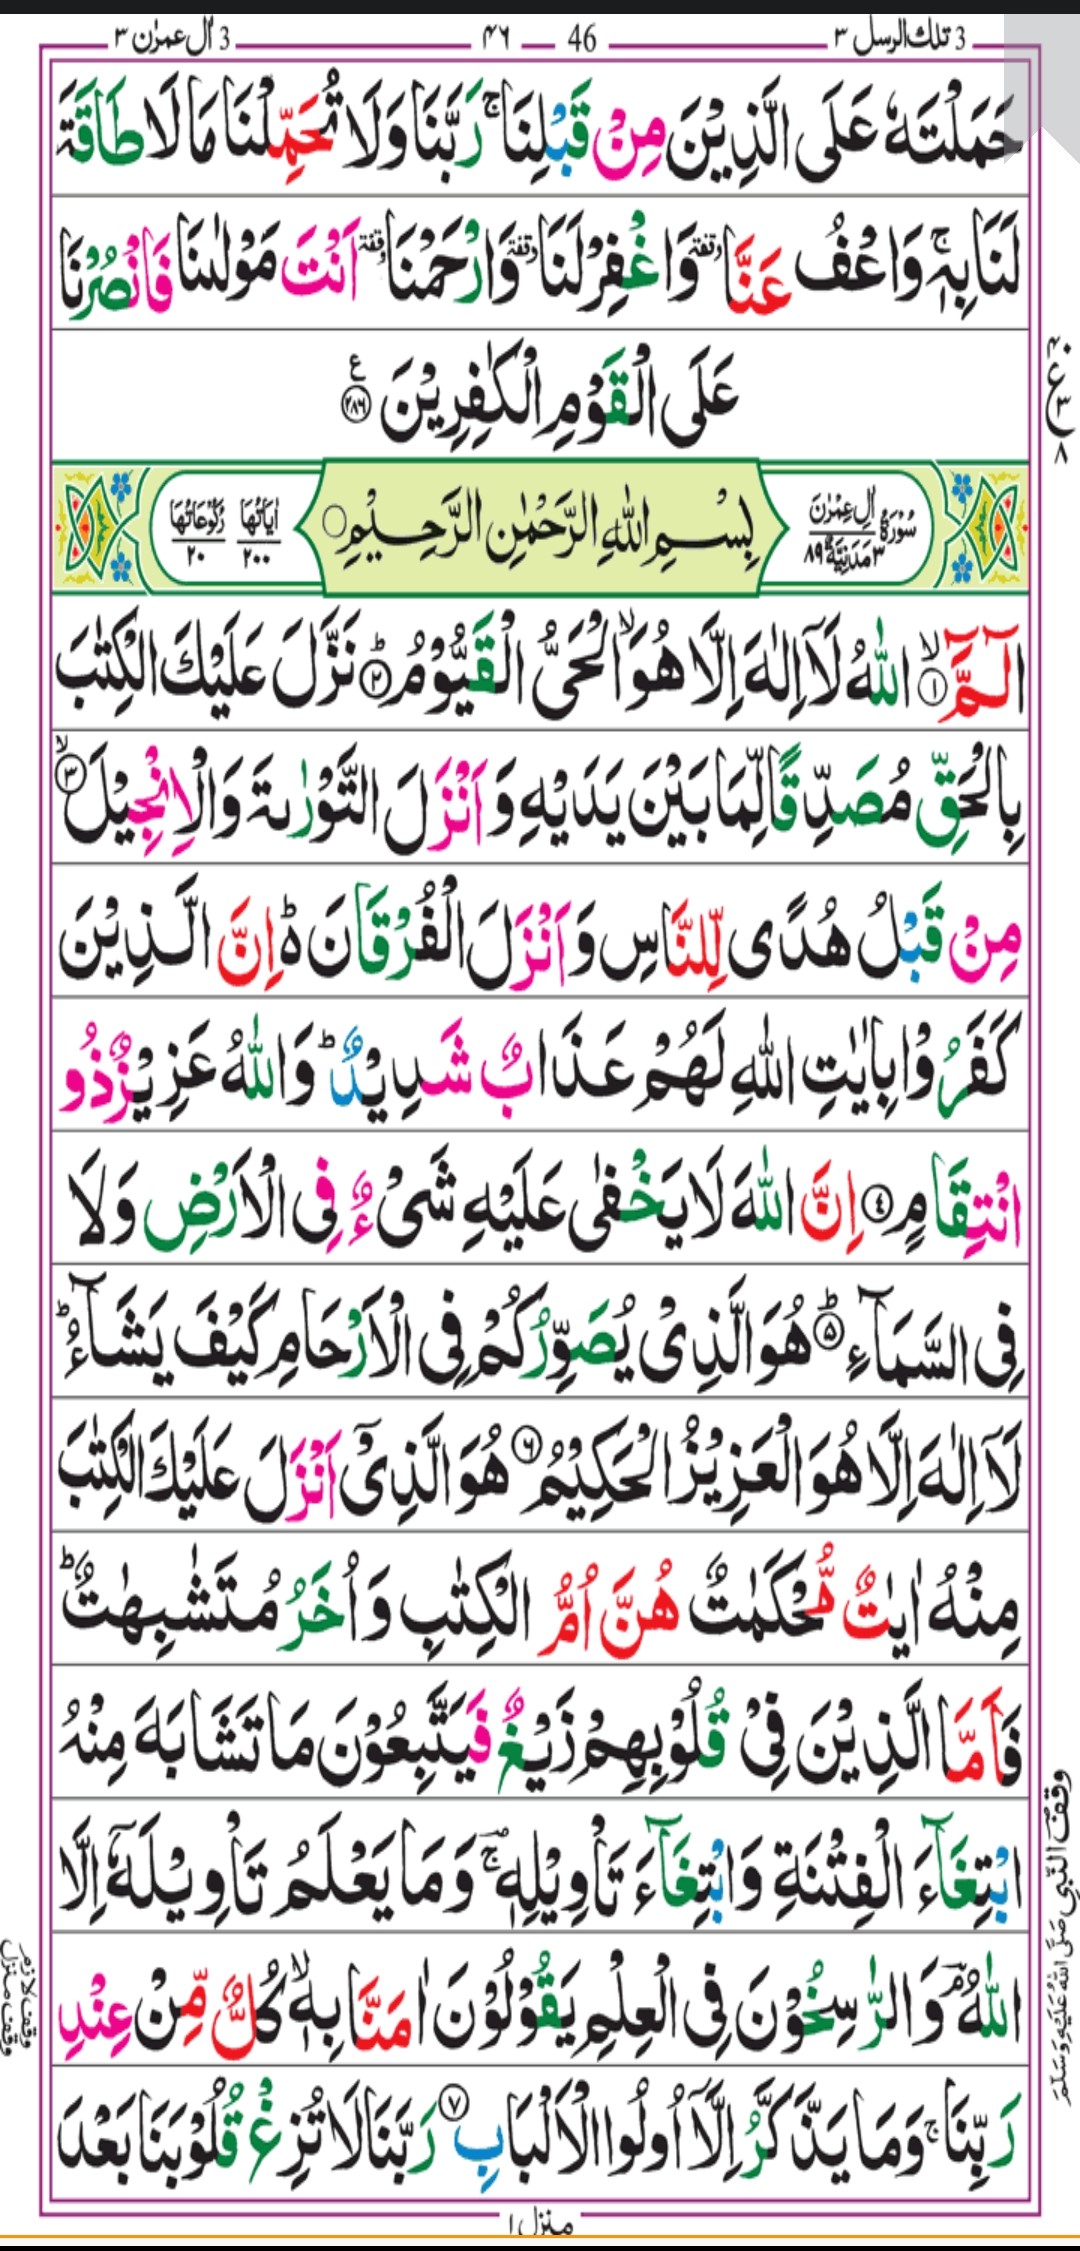 3 تلك الرسل ٣ 46 ٤٦ 3 اٰل عمرٰن ٣
حَمَلْتَهٗ عَلَى الَّذِيْنَ مِنْ قَبْلِنَا ۚ رَبَّنَا وَلَا تُحَمِّلْنَا مَا لَا طَاقَةَ
لَنَا بِهٖ ۚ وَاعْفُ عَنَّا وقفة وَاغْفِرْ لَنَا وقفة وَارْحَمْنَا وقفة اَنْتَ مَوْلٰىنَا فَانْصُرْنَا
عَلَى الْقَوْمِ الْكٰفِرِيْنَ ع ٢٨٦
سُوْرَةُ اٰلِ عِمْرٰنَ ٣ مَدَنِيَّةٌ ٨٩ بِسْمِ اللّٰهِ الرَّحْمٰنِ الرَّحِيْمِ اٰيَاتُهَا ٢٠٠ رُكُوْعَاتُهَا ٢٠
الٓمّٓ ۙ ١ اللّٰهُ لَآ اِلٰهَ اِلَّا هُوَ ۙ الْحَيُّ الْقَيُّوْمُ ؕ ٢ نَزَّلَ عَلَيْكَ الْكِتٰبَ
بِالْحَقِّ مُصَدِّقًا لِّمَا بَيْنَ يَدَيْهِ وَ اَنْزَلَ التَّوْرٰىةَ وَالْاِنْجِيْلَ ۙ ٣
مِنْ قَبْلُ هُدًى لِّلنَّاسِ وَ اَنْزَلَ الْفُرْقَانَ ؕ اِنَّ الَّذِيْنَ
كَفَرُوْا بِاٰيٰتِ اللّٰهِ لَهُمْ عَذَابٌ شَدِيْدٌ ؕ وَاللّٰهُ عَزِيْزٌ ذُو
انْتِقَامٍ ٤ اِنَّ اللّٰهَ لَا يَخْفٰى عَلَيْهِ شَىْءٌ فِى الْاَرْضِ وَ لَا
فِى السَّمَآءِ ؕ ٥ هُوَ الَّذِىْ يُصَوِّرُكُمْ فِى الْاَرْحَامِ كَيْفَ يَشَآءُ ؕ
لَآ اِلٰهَ اِلَّا هُوَ الْعَزِيْزُ الْحَكِيْمُ ٦ هُوَ الَّذِىْٓ اَنْزَلَ عَلَيْكَ الْكِتٰبَ
مِنْهُ اٰيٰتٌ مُّحْكَمٰتٌ هُنَّ اُمُّ الْكِتٰبِ وَ اُخَرُ مُتَشٰبِهٰتٌ ؕ
فَاَمَّا الَّذِيْنَ فِىْ قُلُوْبِهِمْ زَيْغٌ فَيَتَّبِعُوْنَ مَا تَشَابَهَ مِنْهُ
ابْتِغَآءَ الْفِتْنَةِ وَابْتِغَآءَ تَاْوِيْلِهٖ ۚ وَمَا يَعْلَمُ تَاْوِيْلَهٗٓ اِلَّا
اللّٰهُ ۘ وَالرّٰسِخُوْنَ فِى الْعِلْمِ يَقُوْلُوْنَ اٰمَنَّا بِهٖ ۙ كُلٌّ مِّنْ عِنْدِ
رَبِّنَا ۚ وَمَا يَذَّكَّرُ اِلَّآ اُولُوا الْاَلْبَابِ ٧ رَبَّنَا لَا تُزِغْ قُلُوْبَنَا بَعْدَ
منزل ١
ع ٤٠ ٣ ٨
وقف النبى صَلَّى اللّٰهُ عَلَيْهِ وَسَلَّمَ
وقف لازم
وقف منزل